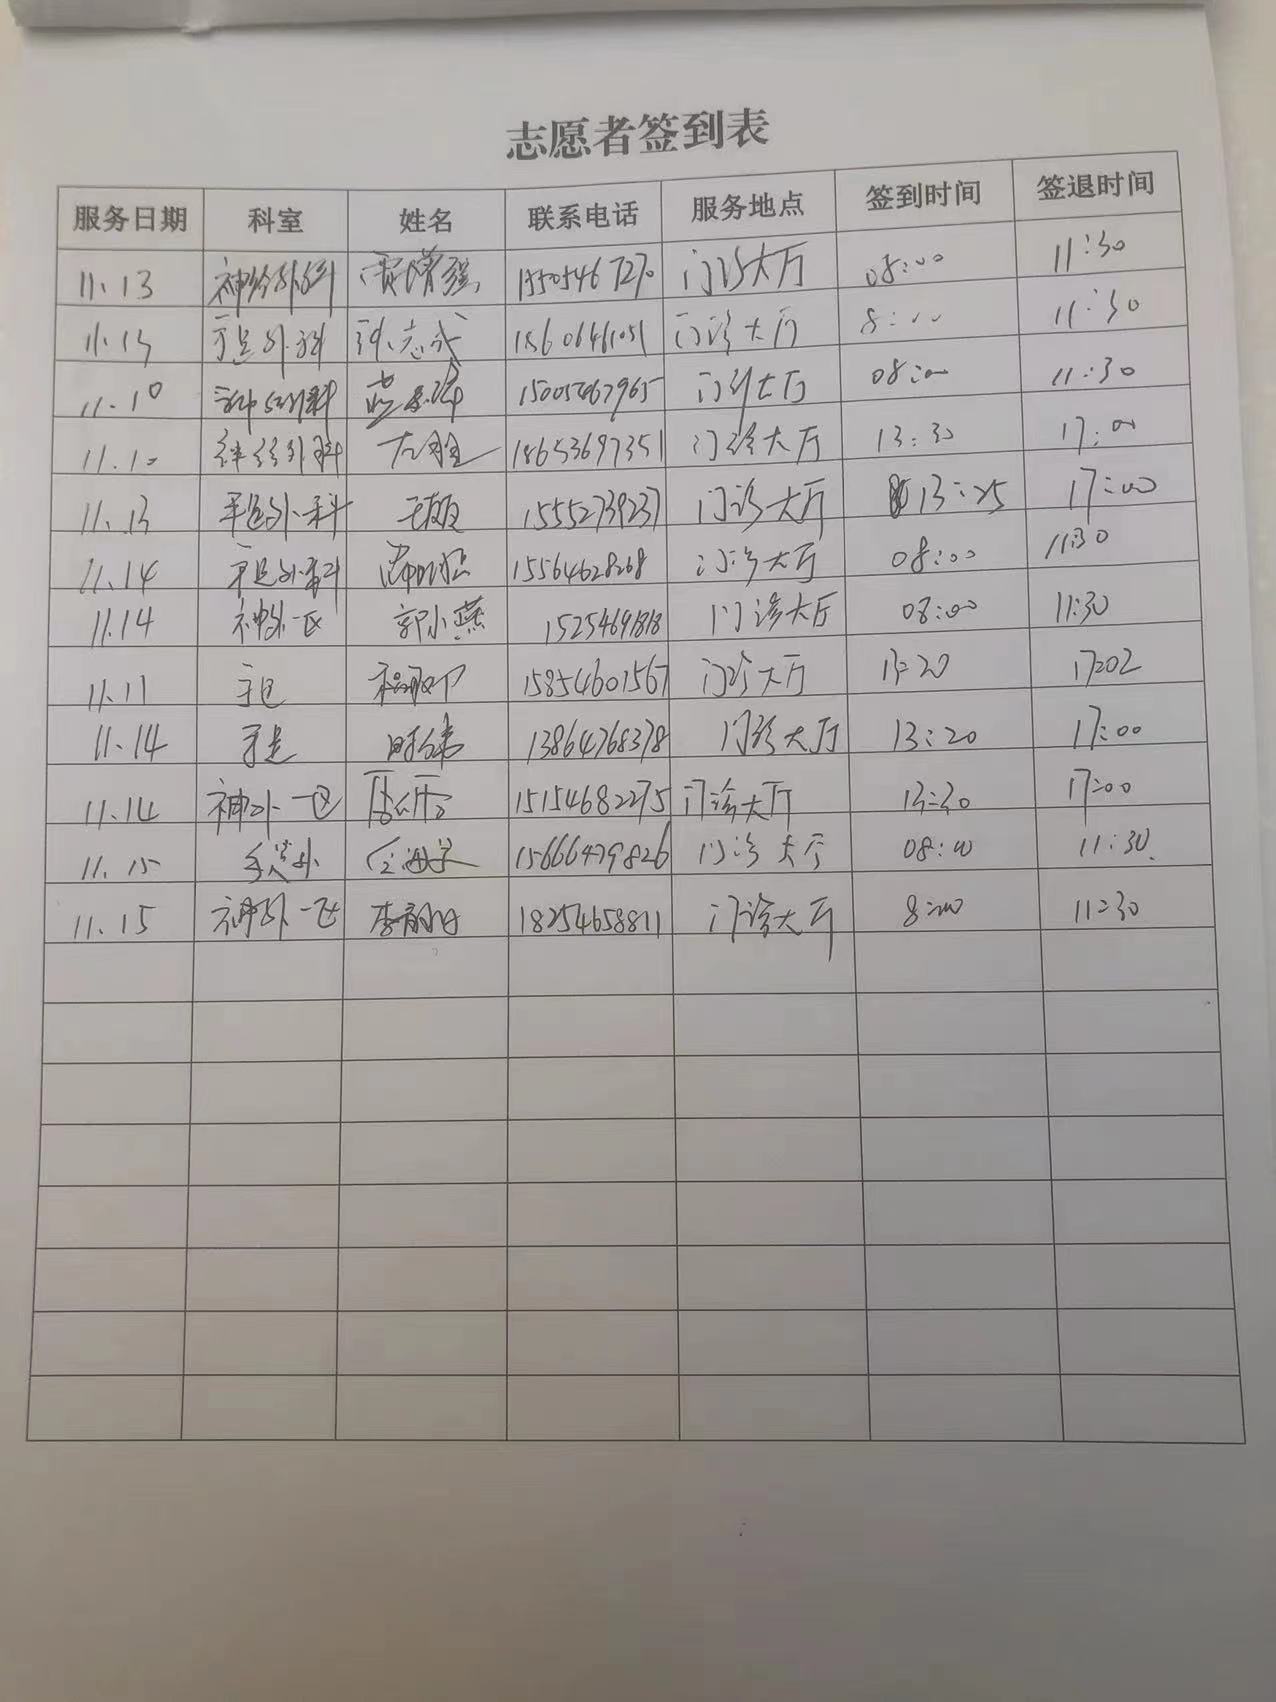 志愿者签到表
服务日期 科室 姓名 联系电话 服务地点 签到时间 签退时间
11.13 神经外科 门诊大厅 08:00 11:30
11.13 手足外科 志 门诊大厅 8:00 11:30
11.10 神经外科 15005467965 门诊大厅 08:00 11:30
11.10 神经外科 18653697351 门诊大厅 13:30 17:00
11.13 手足外科 15552739237 门诊大厅 13:25 17:00
11.14 手足外科 15564628268 门诊大厅 08:00 11:30
11.14 神外一区 郭小燕 15254691818 门诊大厅 08:00 11:30
11.11 手足 15854601567 门诊大厅 13:20 17:02
11.14 手足 时 13864768378 门诊大厅 13:20 17:00
11.14 神外一区 15154682275 门诊大厅 13:30 17:00
11.15 手足外 15666479826 门诊大厅 08:00 11:30
11.15 神外一区 李 18254658811 门诊大厅 8:00 11:30